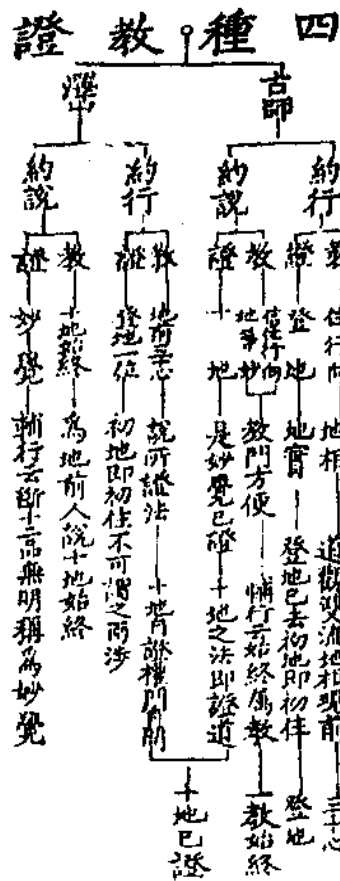 四種教證
古師
約行
教 住行向 地相 道觀雙流地相現前 三十心
證 登地 地實 登地已去初地即初住 登地
約說
教 信住行向地等妙 教門方便 輔行云始終屬教 教始終
證 十地 是妙覺已證 十地之法即證道
約行
教 地前 說所證法 十地
證 登地一位 初地即初住不可謂之
十地已證
約說
教 十地始終 為地前人說十地始終
證 妙覺 輔行云斷十二品無明稱為妙覺